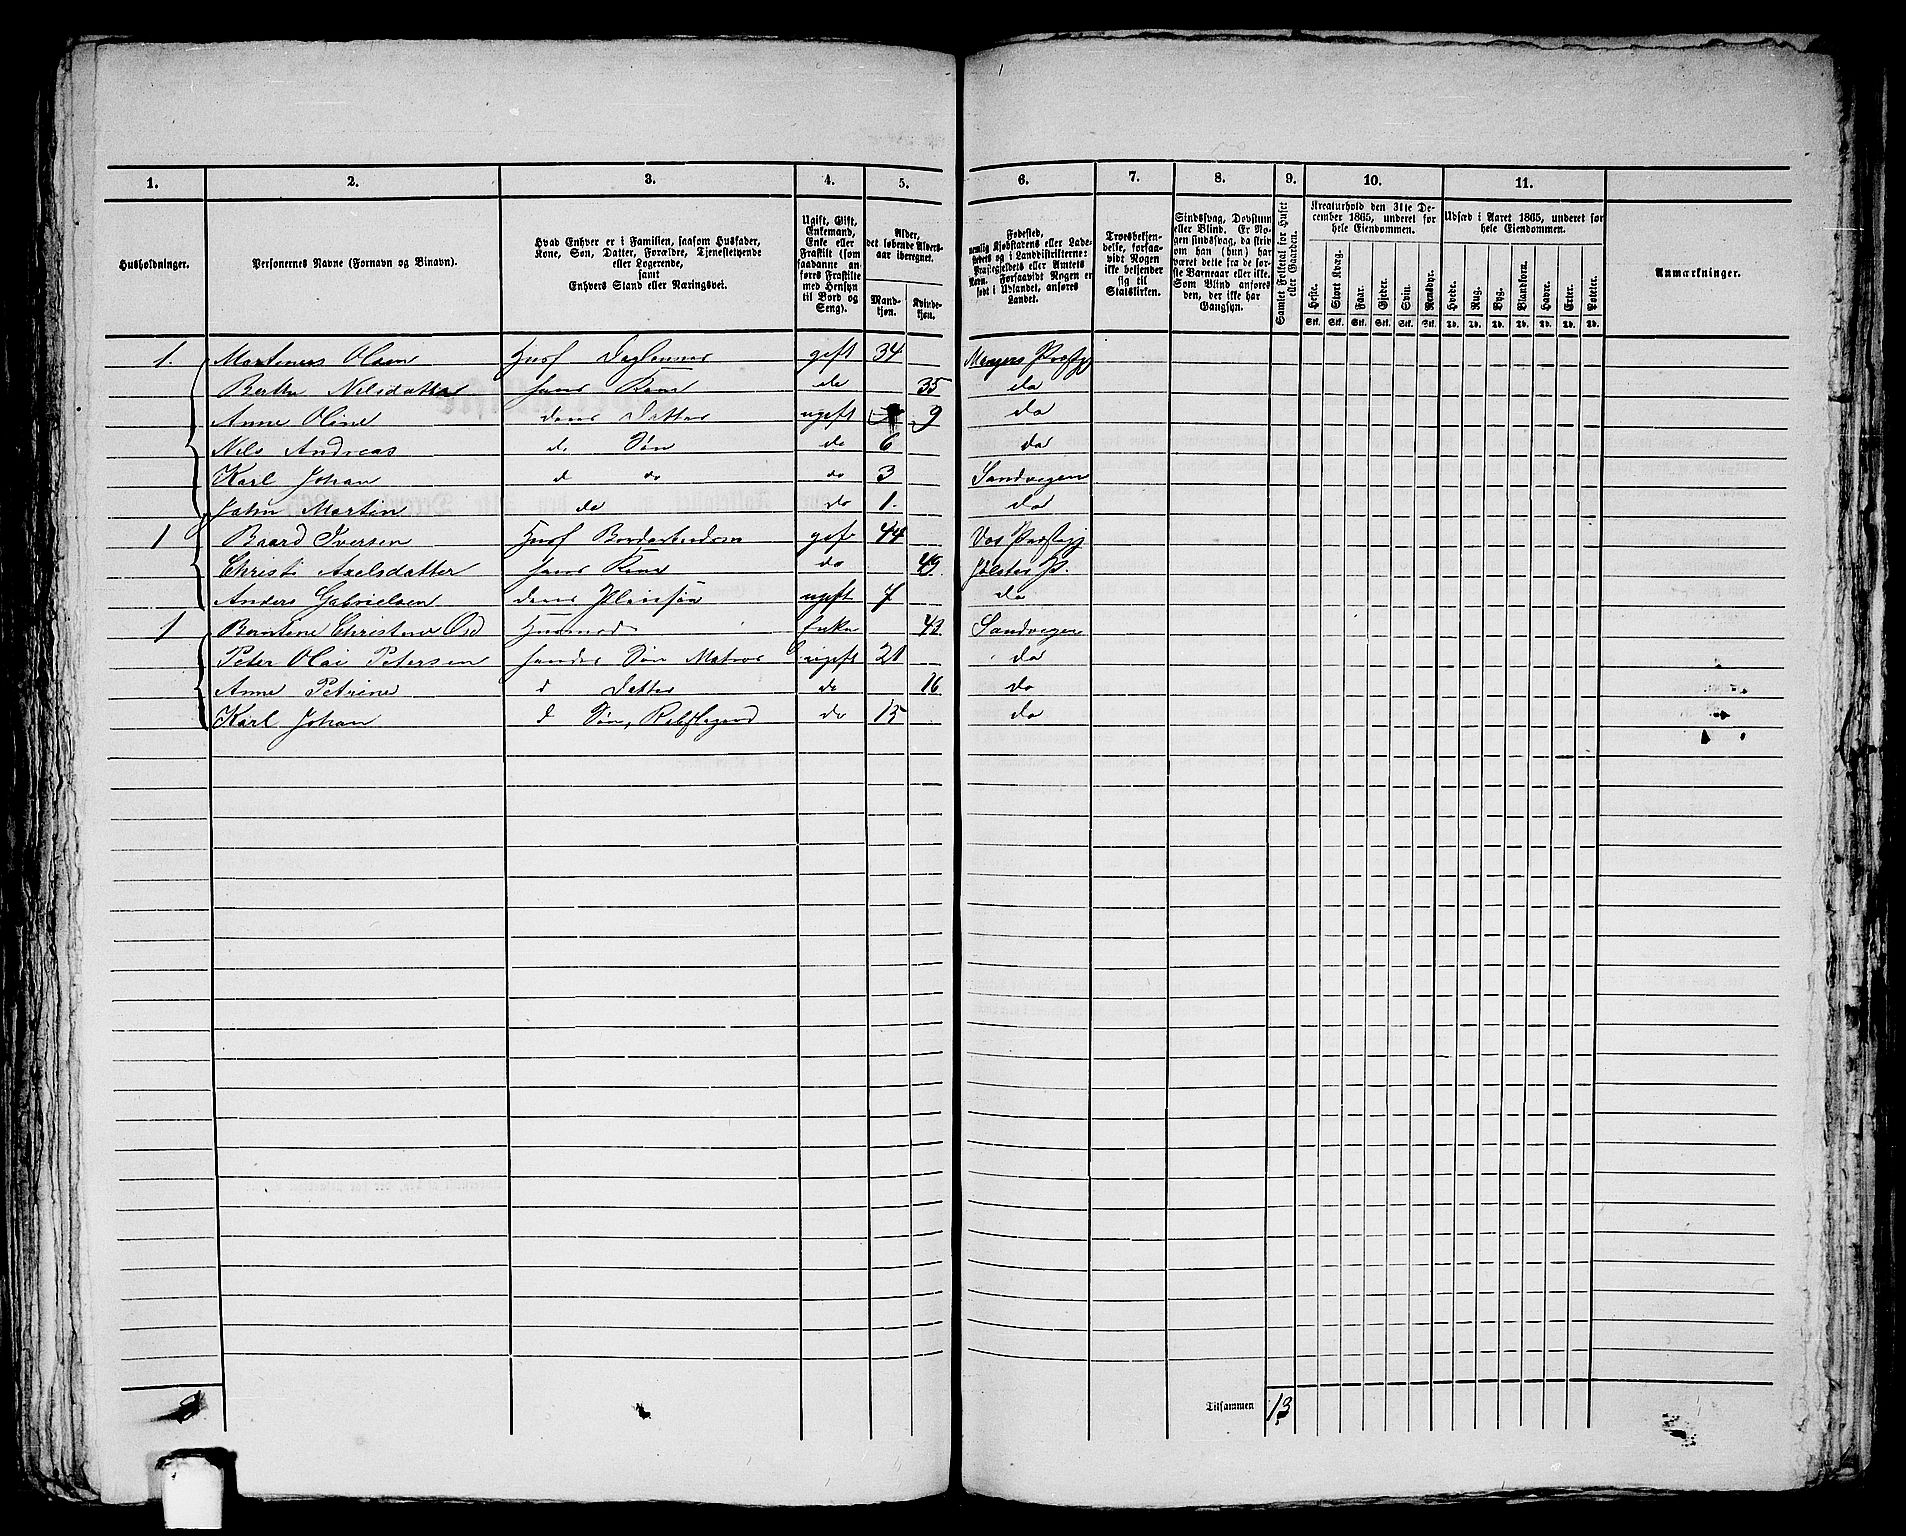 1. 2. 3. 4. 5. 6. 7. 8. 9. 10. 11.
Husholdninger.
Personernes Navne (Fornavn og Binavn).
Hvad Enhver er i Familien, saasom Husfader,
Kone, Søn, Datter, Forældre, Tjenestetyende
eller Logerende,
samt
Enhvers Stand eller Næringsvei.
Ugift, Gift,
Enkemand,
Enke eller
Fraskilt (som
saadanne an-
føres Fraskilte
med Hensyn
til Bord og
Seng).
Alder,
det løbende Alders-
aar iberegnet.
Mand-
kjøn.
Kvinde-
kjøn.
Fødested,
nemlig Kjøbstadens eller Lade-
stedets og i Landdistrikterne:
Præstegjeldets eller Amtets
Navn. Forsaavidt Nogen er
født i Udlandet, anføres
Landet.
Troesbekjen-
delse, forsaa-
vidt Nogen
ikke bekjender
sig til
Statskirken.
Sindssvag, Døvstum
eller Blind. Er No-
gen sindssvag, da skriv
om han (hun) har
været dette fra de før-
ste Barneaar eller ikke.
Som Blind anføres
den, der ikke har
Gangsyn.
Samlet Folketal for Huset
eller Gaarden.
Kreaturhold den 31te De-
cember 1865, underet for
hele Eiendommen.
Heste. Stort Kvæg. Faar. Gjeder. Svin. Rensdyr.
Stk. Stk. Stk. Stk. Stk. Stk.
Udsæd i Aaret 1865, underet for
hele Eiendommen.
Hvede. Rug. Byg. Blandkorn. Havre. Erter. Poteter.
Td. Td. Td. Td. Td. Td. Td.
Anmærkninger.
1. Martinus Olsen Husf gift 34
Berthe Nilsdatter hans Kone do 35 do
Anne Oline deres Datter ugift 9 do
Nils Andreas d. Søn do 6 do
Karl Johan d do do 3 Sandvigen
John Martin do do 1. do
1 Baard Iversen Husf gift 44 Vos
Christi Axelsdatter hans Kone do 49 Jølster P.
Anders Gabrielsen deres Pleiesøn ugift do
1 Berntine Christine Husmod Enke 43 Sandvigen
Peter Olai Petersen hendes Søn Matros ugift 21 do
Anne Petrine d Datter do 16 do
Karl Johan d Søn, do 15 do
3
Tilsammen 13